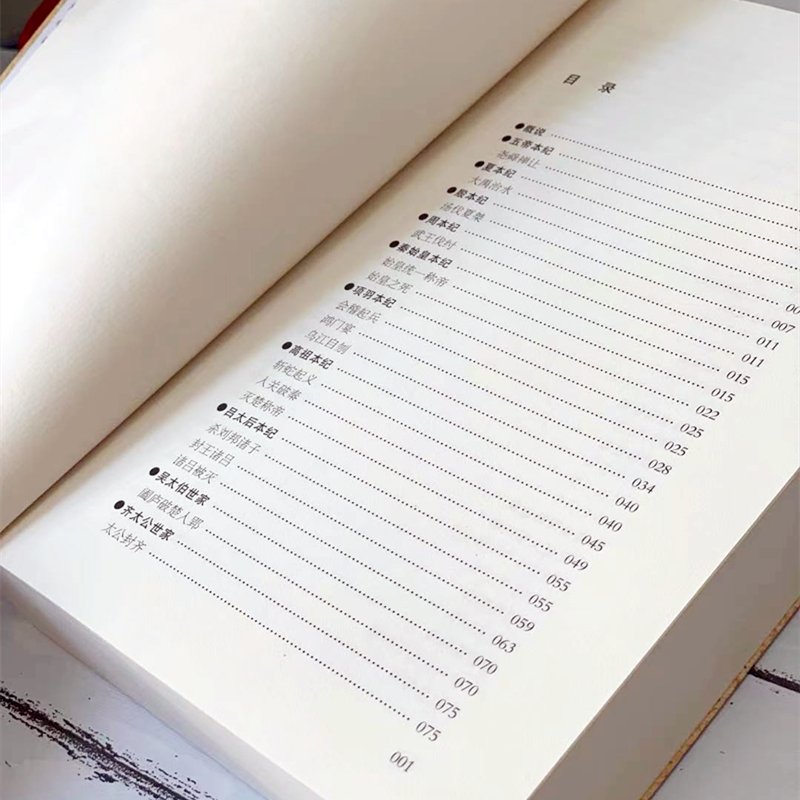 目 录
●概说
●五帝本纪
尧舜禅让
●夏本纪
大禹治水
●殷本纪 00
汤伐夏桀 007
●周本纪 011
武王伐纣 011
●秦始皇本纪 015
始皇统一称帝 015
始皇之死 022
●项羽本纪 025
会稽起兵 025
鸿门宴 028
乌江自刎 034
●高祖本纪 040
斩蛇起义 040
入关破秦 045
灭楚称帝 049
●吕太后本纪 055
杀刘邦诸子 055
封王诸吕 059
诸吕被灭 063
●吴太伯世家 070
阖庐破楚入郢 070
●齐太公世家 075
太公封齐 075
001